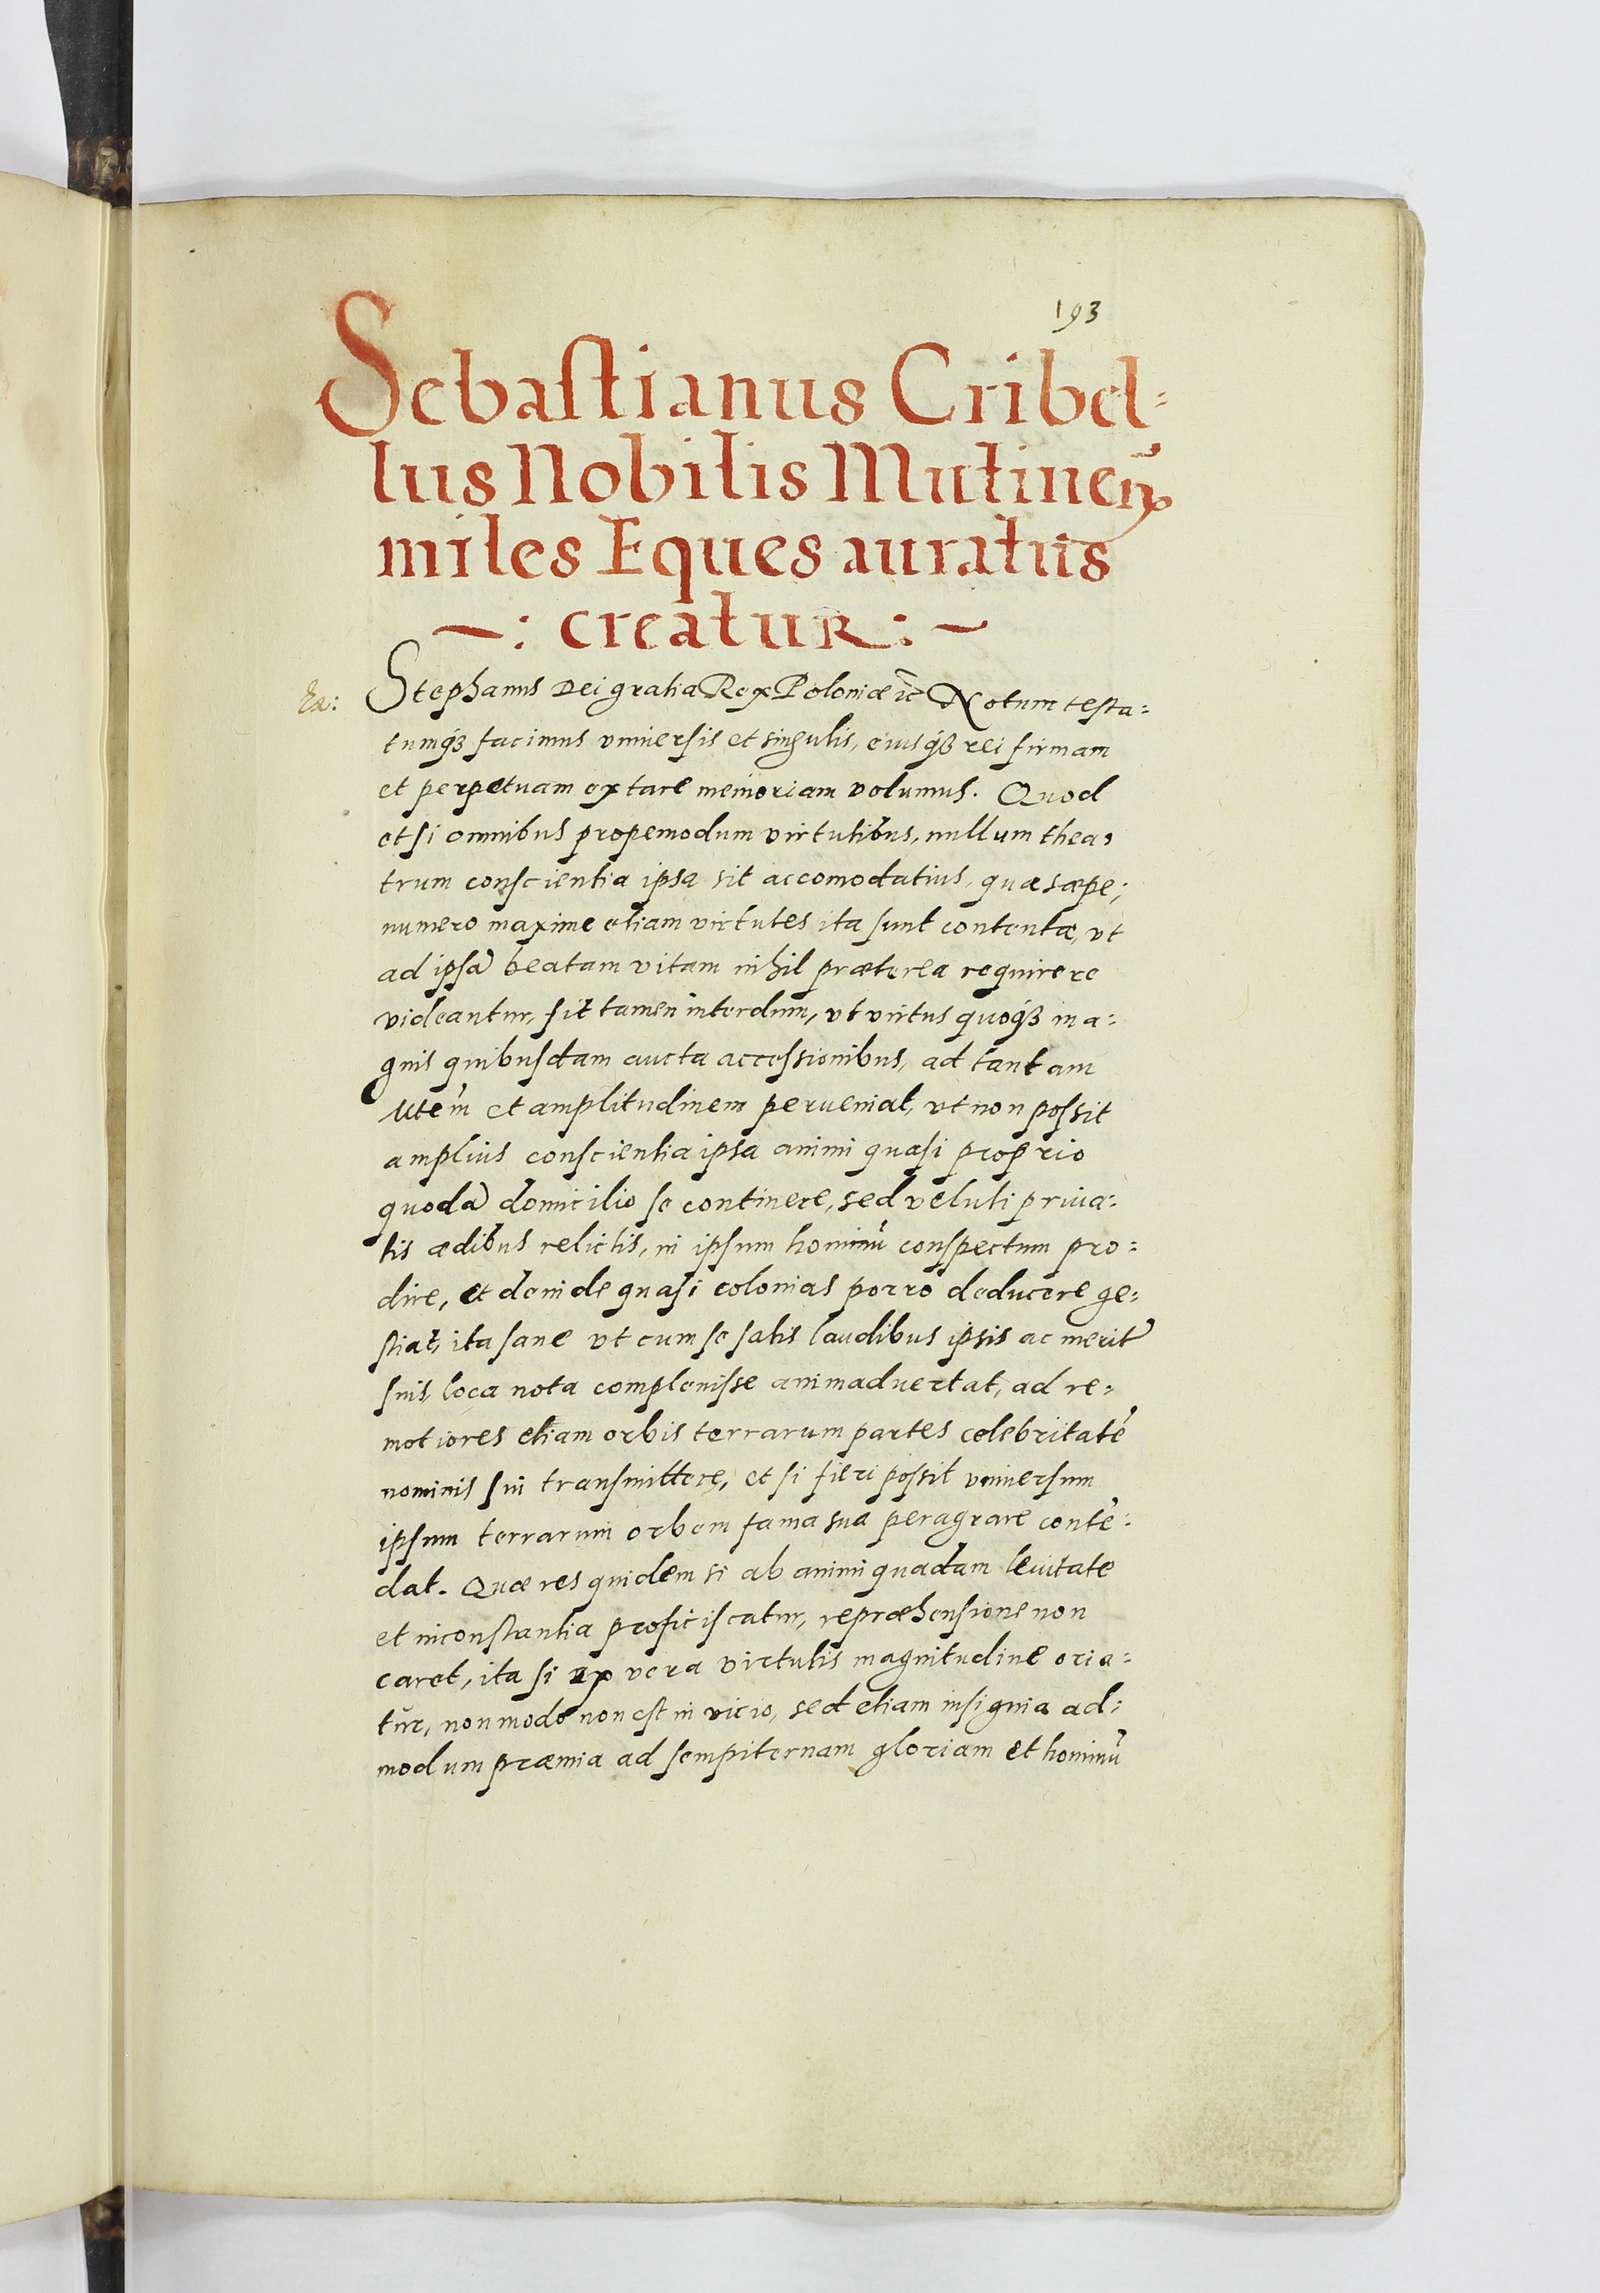 193
Sebastianus Cribel=
lus Nobilis Mutinen̄
miles Eques auratus
~: creatur :~
Stephanus Dei gratia Rex Poloniæ Notum testa=
tumqȝ facimus vniuersis et singulis, eiusqȝ rei firmam
et perpetuam extare memoriam volumus. Quod
et si omnibus propemodum virtutibus, nullum thea=
trum conscientia ipsa sit accomodatius, qua sæpe;
numero maxime etiam virtutes ita sunt contentæ, vt
ad ipsā beatam vitam nihil præterea requirere
videantur, fit tamen interdum, vt virtus quoqȝ ma=
gnis quibusdam aucta accessionibus, ad tantam
et amplitudinem perueniat, vt non possit
amplius conscientia ipsa animi quasi proprio
quodā domicilio se continere, sed veluti priua=
tis ædibus relictis, in ipsum hominū conspectum pro=
dire, et deinde quasi colonias porro deducere ge=
stiat, ita sane vt cum se satis laudibus ipsis ac merit
suis, loca nota compleuisse animaduertat, ad re=
motiores etiam orbis terrarum partes celebritatē
nominis sui transmittere, et si fieri possit vniuersum
ipsum terrarum orbem fama sua peragrare contē=
dat. Quæ res quidem si ab animi quadam leuitate
et inconstantia proficiscatur, repræhensione non
caret, ita si ex vera virtutis magnitudine oria=
tur, non modo non est in vicio, sed etiam insignia ad;
modum præmia ad sempiternam gloriam et hominū